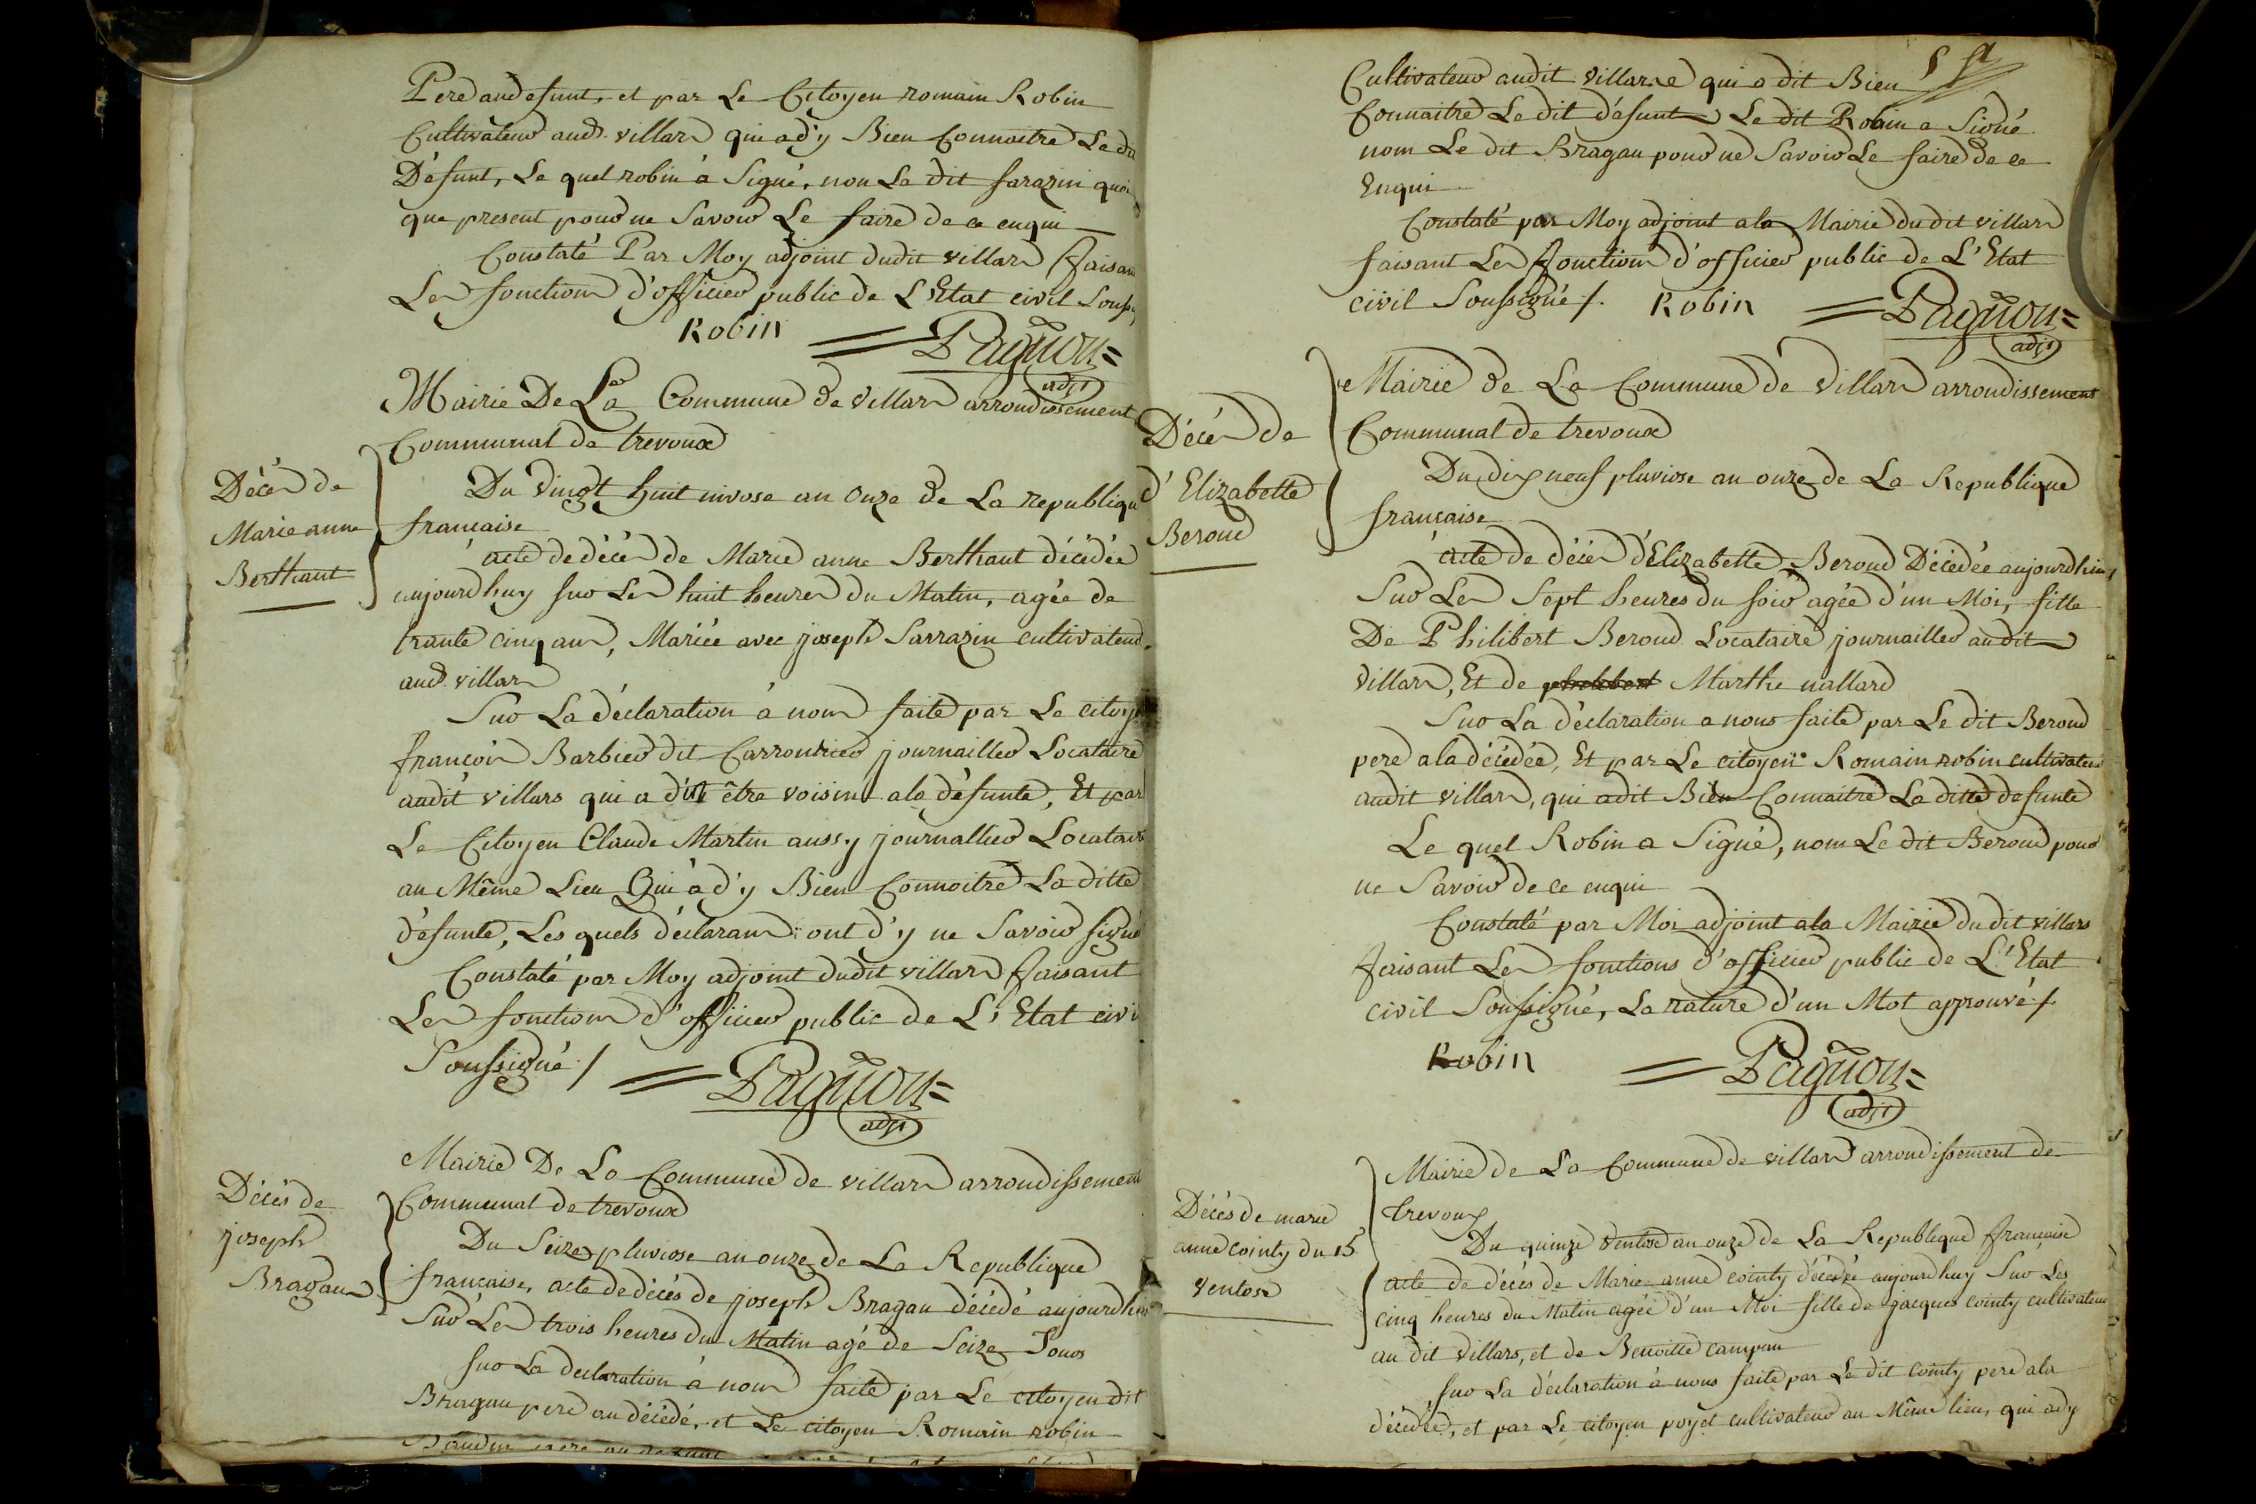 Pere aud defunt, et par Le Citoyen romain Robin
Cultivateur aud. villars qui a d'y Bien Connoitre Le dit
Défunt, Le quel robin à Signé, non Le dit sarazin quoi
que present pour ne Savoir Le faire de ce enqui
Constaté Par Moy adjoint dudit villars faisant
Les fonctions d'officier public de L'Etat civil Souss
Robin Pagnon
adjt
Mairie De La Commune de villars arrondissement
Communal de trevoux
Décès de
Marie anne
Berthaut
Du vingt huit nivose an onze de La republique
française
acte de décès de Marie anne Berthaut décédée
aujourd'huy sur Les huit heures du Matin, agée de
trante cinq ans, Mariée avec joseph Sarrazin cultivateur
aud. villars
Sur La déclaration à nous faite par Le citoyen
françois Barbier dit Carronnier journaillier Locataire
audit villars qui a dit être voisin a la défunte, Et par
Le Citoyen Claude Martin aussy journallier Locataire
au Même Lieu Qui a d'y Bien Connoitre La ditte
défunte, Les quels déclarans ont d'y ne Savoir signé
Constaté par Moy adjoint dudit villars faisant
Les fonctions d'officier public de L'Etat civil
Soussigné /.
Pagnon
adjt
Mairie De La Commune de villars arrondissement
Communal de trevoux
Décès de
joseph
Bragan
Du Seize pluviose an onze de La Republique
française, acte de décès de joseph Bragan décédé aujourdhuy
Sur Les trois heures du Matin agé de Seize Jours
sur La declaration à nous faite par Le citoyen dit
Bragan pere au décédé, et Le citoyen Romain robin
Cultivateur audit villars qui a dit Bien
Connaitre Le dit défunt Le dit Robin a Signé
nom Le dit Bragan pour ne Savoir Le faire de ce
Enqui
Constaté par Moy adjoint a la Mairie du dit villars
faisant Les fonctions d'officier public de L'Etat
civil Soussigné /. Robin Pagnon
adjt
Mairie de La Commune de villars arrondissement
Communal de trevoux
Décès de
d'Elizabette
Beroud
Du dix neuf pluviose an onze de La Republique
française
acte de décès d'Elizabette Beroud Décédée aujourdhuy
Sur Les Sept heures du soir agée d'un Moi, fille
De Philibert Beroud Locataire journaillier audit
villars, Et de philibert Marthe nallard
Sur La déclaration a nous faite par Le dit Beroud
pere a la décédée, Et par Le citoyen Romain robin cultivateur
audit villars, qui a dit Bien Connaitre La ditte defunte
Le quel Robin a Signé, nom Le dit Beroud pour
ne Savoir de ce enqui
Constaté par Moi adjoint a la Mairie du dit villars
faisant Les fonctions d'officier public de L'Etat
civil Soussigné, La rature d'un Mot approuvé /.
Robin Pagnon
adjt
Mairie de La Commune de villars arrondissement de
trevoux
Décès de marie
anne cointy du 15
ventose
Du quinze ventose an onze de La Republique française
acte de décès de Marie anne cointy décédée aujourdhuy Sur Les
cinq heures du Matin agée d'un Moi fille de jacques cointy cultivateur
au dit villars, et de Benoitte campan
sur La déclaration à nous faite par Le dit cointy pere a la
décédée, et par Le citoyen poyet cultivateur au Même lieu, qui a dy